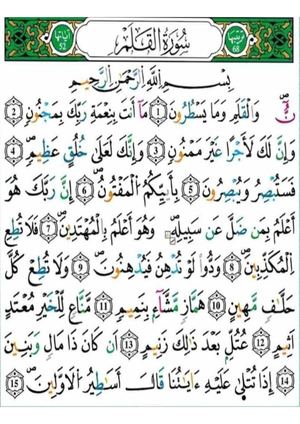 ترتيبها 68 سُورَةُ القَلَمِ آياتها 52
بِسْمِ اللَّهِ الرَّحْمَٰنِ الرَّحِيمِ
نٓ وَالْقَلَمِ وَمَا يَسْطُرُونَ ١ مَا أَنتَ بِنِعْمَةِ رَبِّكَ بِمَجْنُونٍ ٢
وَإِنَّ لَكَ لَأَجْرًا غَيْرَ مَمْنُونٍ ٣ وَإِنَّكَ لَعَلَىٰ خُلُقٍ عَظِيمٍ ٤
فَسَتُبْصِرُ وَيُبْصِرُونَ ٥ بِأَييِّكُمُ الْمَفْتُونُ ٦ إِنَّ رَبَّكَ هُوَ
أَعْلَمُ بِمَن ضَلَّ عَن سَبِيلِهِ وَهُوَ أَعْلَمُ بِالْمُهْتَدِينَ ٧ فَلَا تُطِعِ
الْمُكَذِّبِينَ ٨ وَدُّوا لَوْ تُدْهِنُ فَيُدْهِنُونَ ٩ وَلَا تُطِعْ كُلَّ
حَلَّافٍ مَّهِينٍ ١٠ هَمَّازٍ مَّشَّاءٍ بِنَمِيمٍ ١١ مَّنَّاعٍ لِّلْخَيْرِ مُعْتَدٍ
أَثِيمٍ ١٢ عُتُلٍّ بَعْدَ ذَٰلِكَ زَنِيمٍ ١٣ أَن كَانَ ذَا مَالٍ وَبَنِينَ
١٤ إِذَا تُتْلَىٰ عَلَيْهِ ءَايَاتُنَا قَالَ أَسَاطِيرُ الْأَوَّلِينَ ١٥